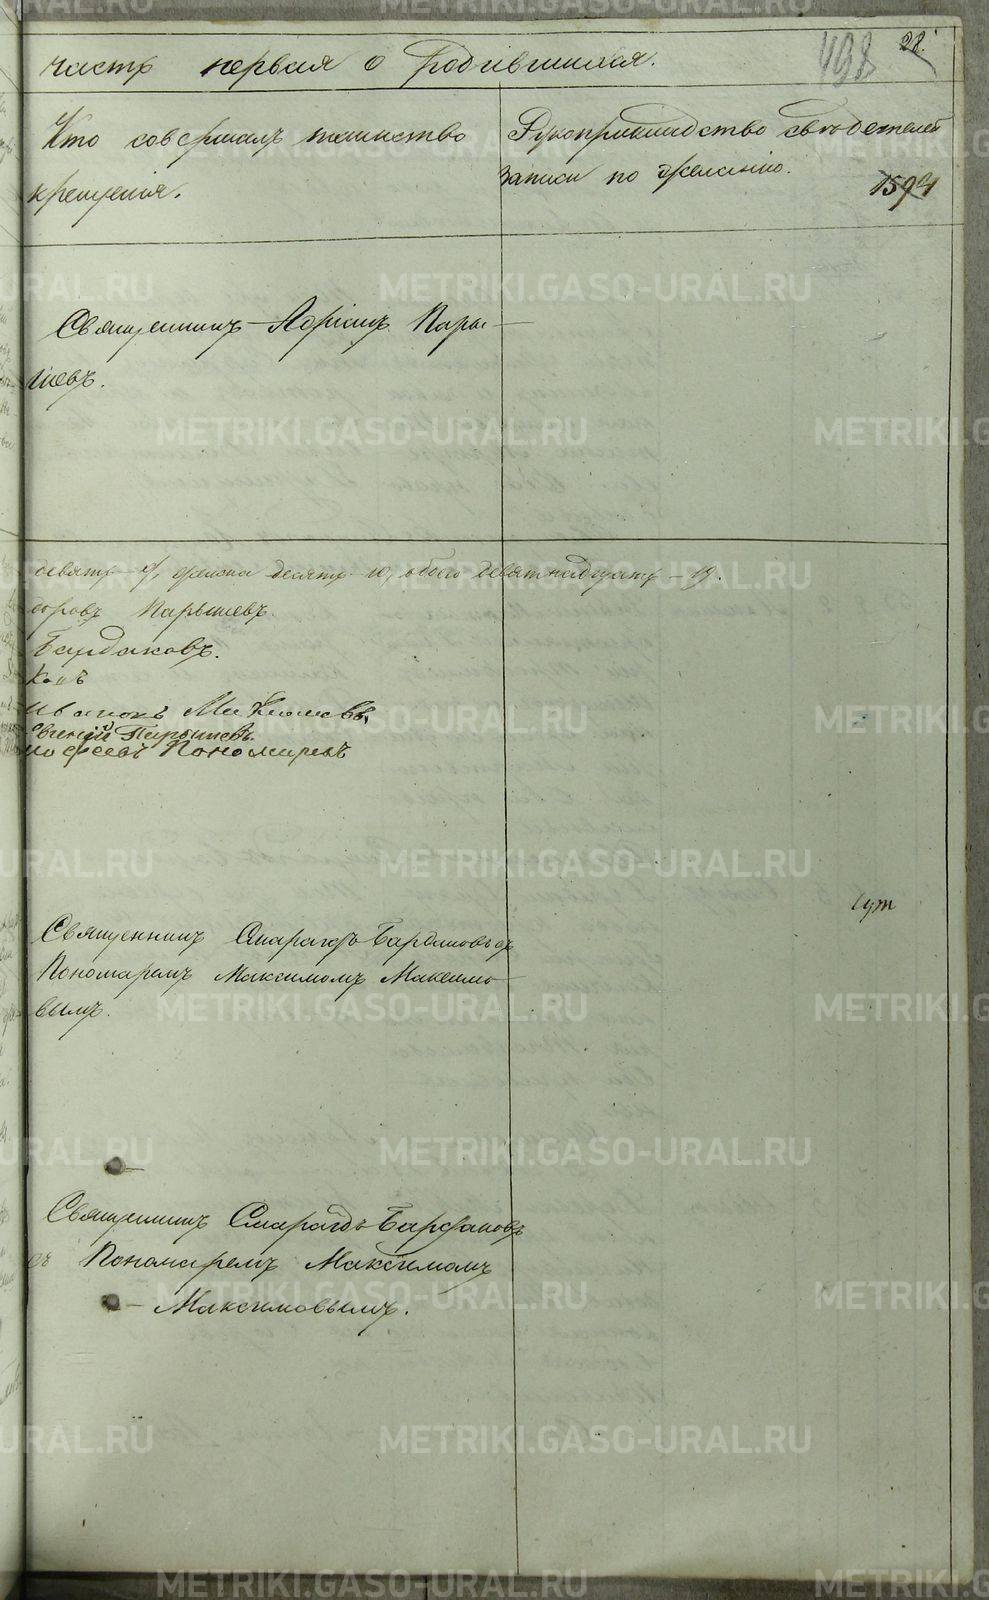 498 28.
часть первая о родившихся.
Кто совершалъ таинство
крещенія.
Рукоприкладство свидетелей
записи по желанію.
1594
Священникъ Пары-
шевъ.
девять - 9, женска десять - 10, обоего девятнадцать - 19.
Парышевъ.
Бардаковъ.
Парышевъ.
Пономаревъ
Священникъ Смарагдъ Бардаковъ съ
Пономаремъ Максимомъ Максимо-
вымъ.
Священникъ Смарагдъ Бардаковъ
съ Пономаремъ Максимомъ
Максимовымъ.
METRIKI.GASO-URAL.RU